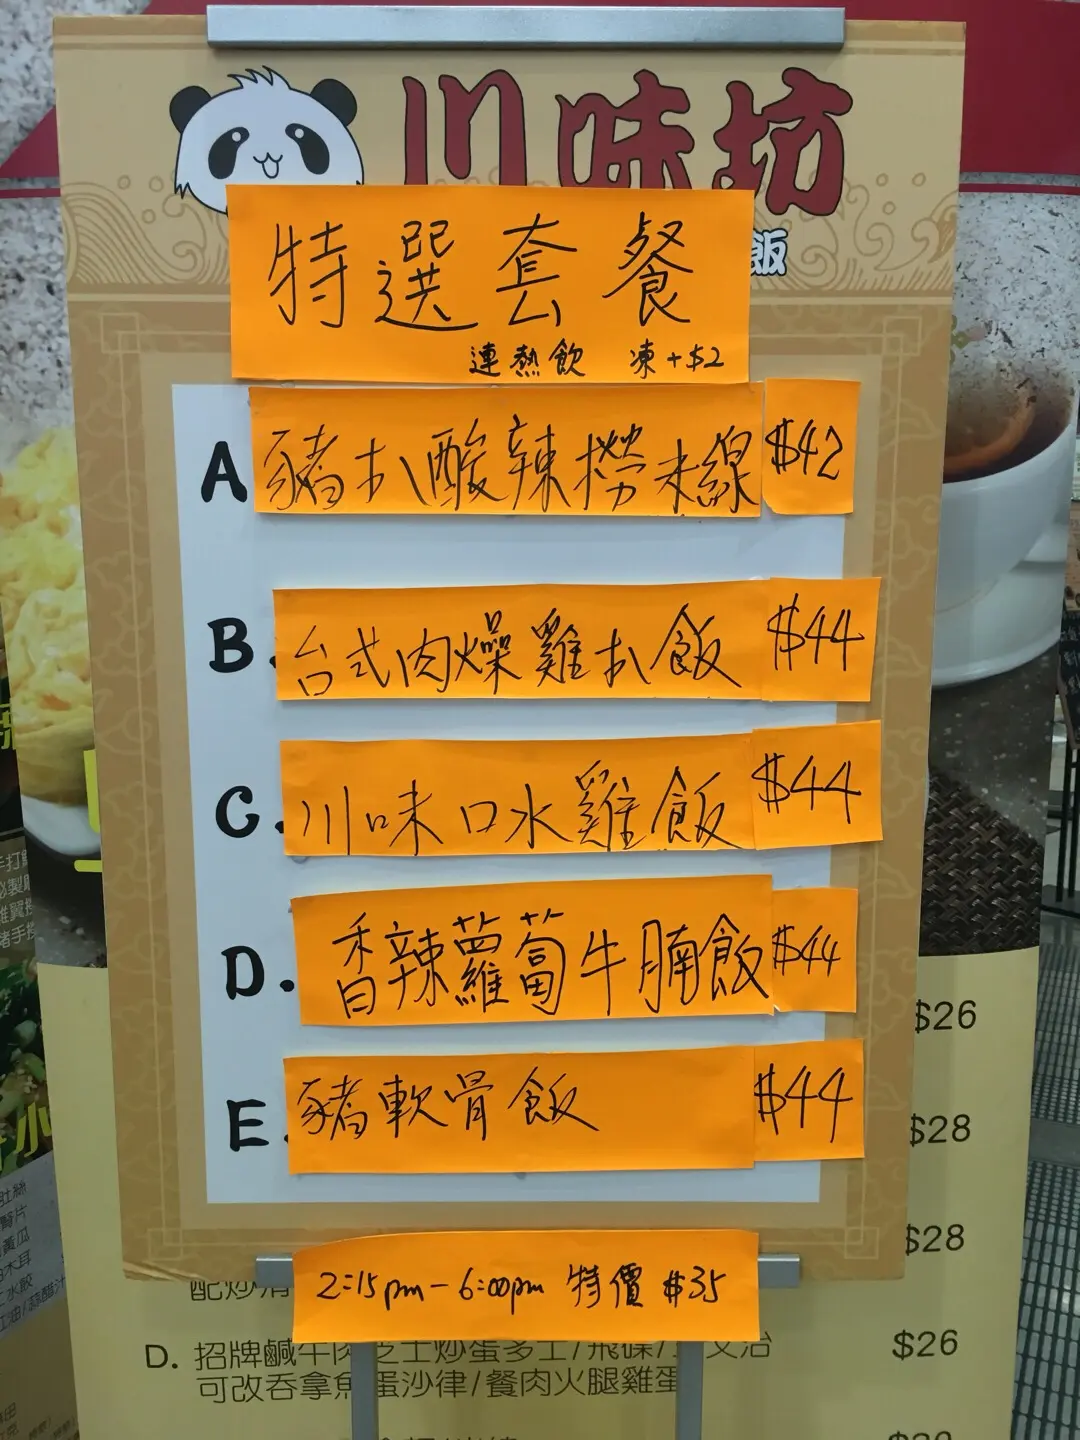 川味坊
飯
特選套餐
連熱飲 凍+$2
A 豬扒酸辣撈米線 $42
B. 台式肉燥雞扒飯 $44
C. 川味口水雞飯 $44
D. 香辣蘿蔔牛腩飯 $44
E. 豬軟骨飯 $44
2:15pm-6:00pm 特價 $35
$26
$28
$28
D. 招牌鹹牛肉芝士炒蛋多士/飛碟/ 文治 $26
可改吞拿魚蛋沙律/餐肉火腿雞蛋